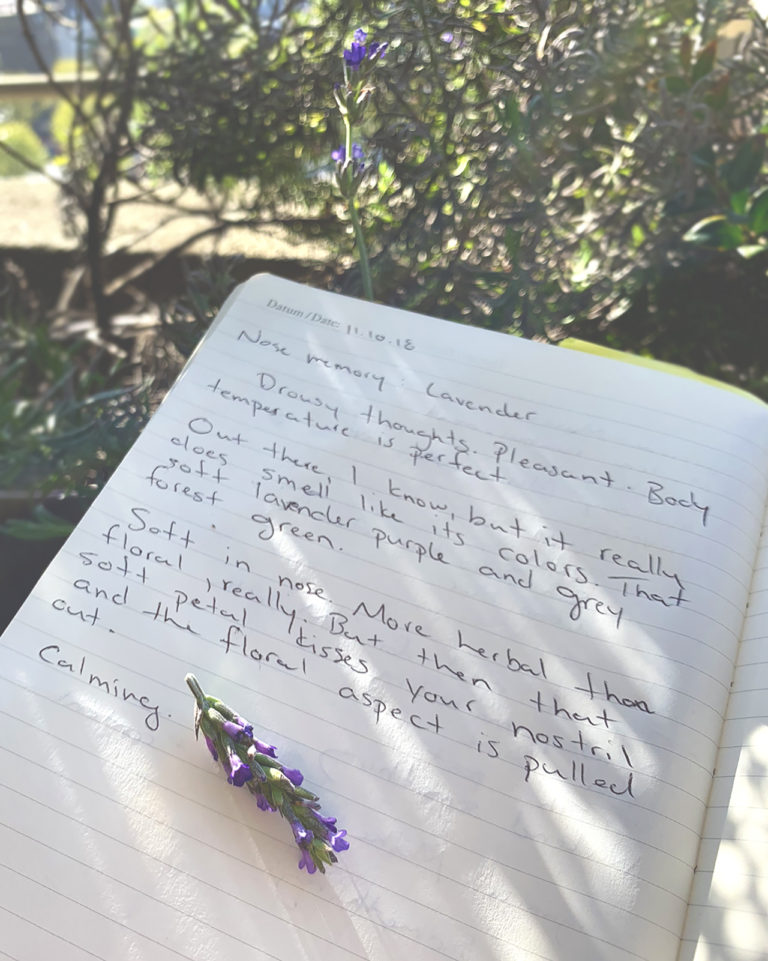 Datum/Date: 11.10.18
Nose memory: Lavender
Drowsy thoughts. Pleasant. Body
temperature is perfect
Out there, I know, but it really
does smell like its colors. That
soft lavender purple and grey
forest green.
Soft in nose. More herbal than
floral, really. But then that
soft petal kisses your nostril
and the floral aspect is pulled
out.
Calming.